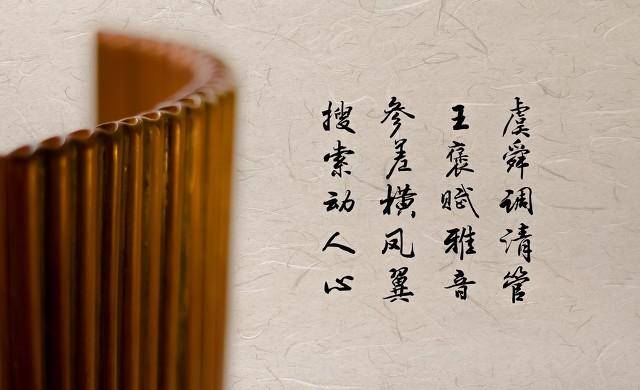 虞舜调清管
王褒赋雅音
参差横凤翼
搜索动人心